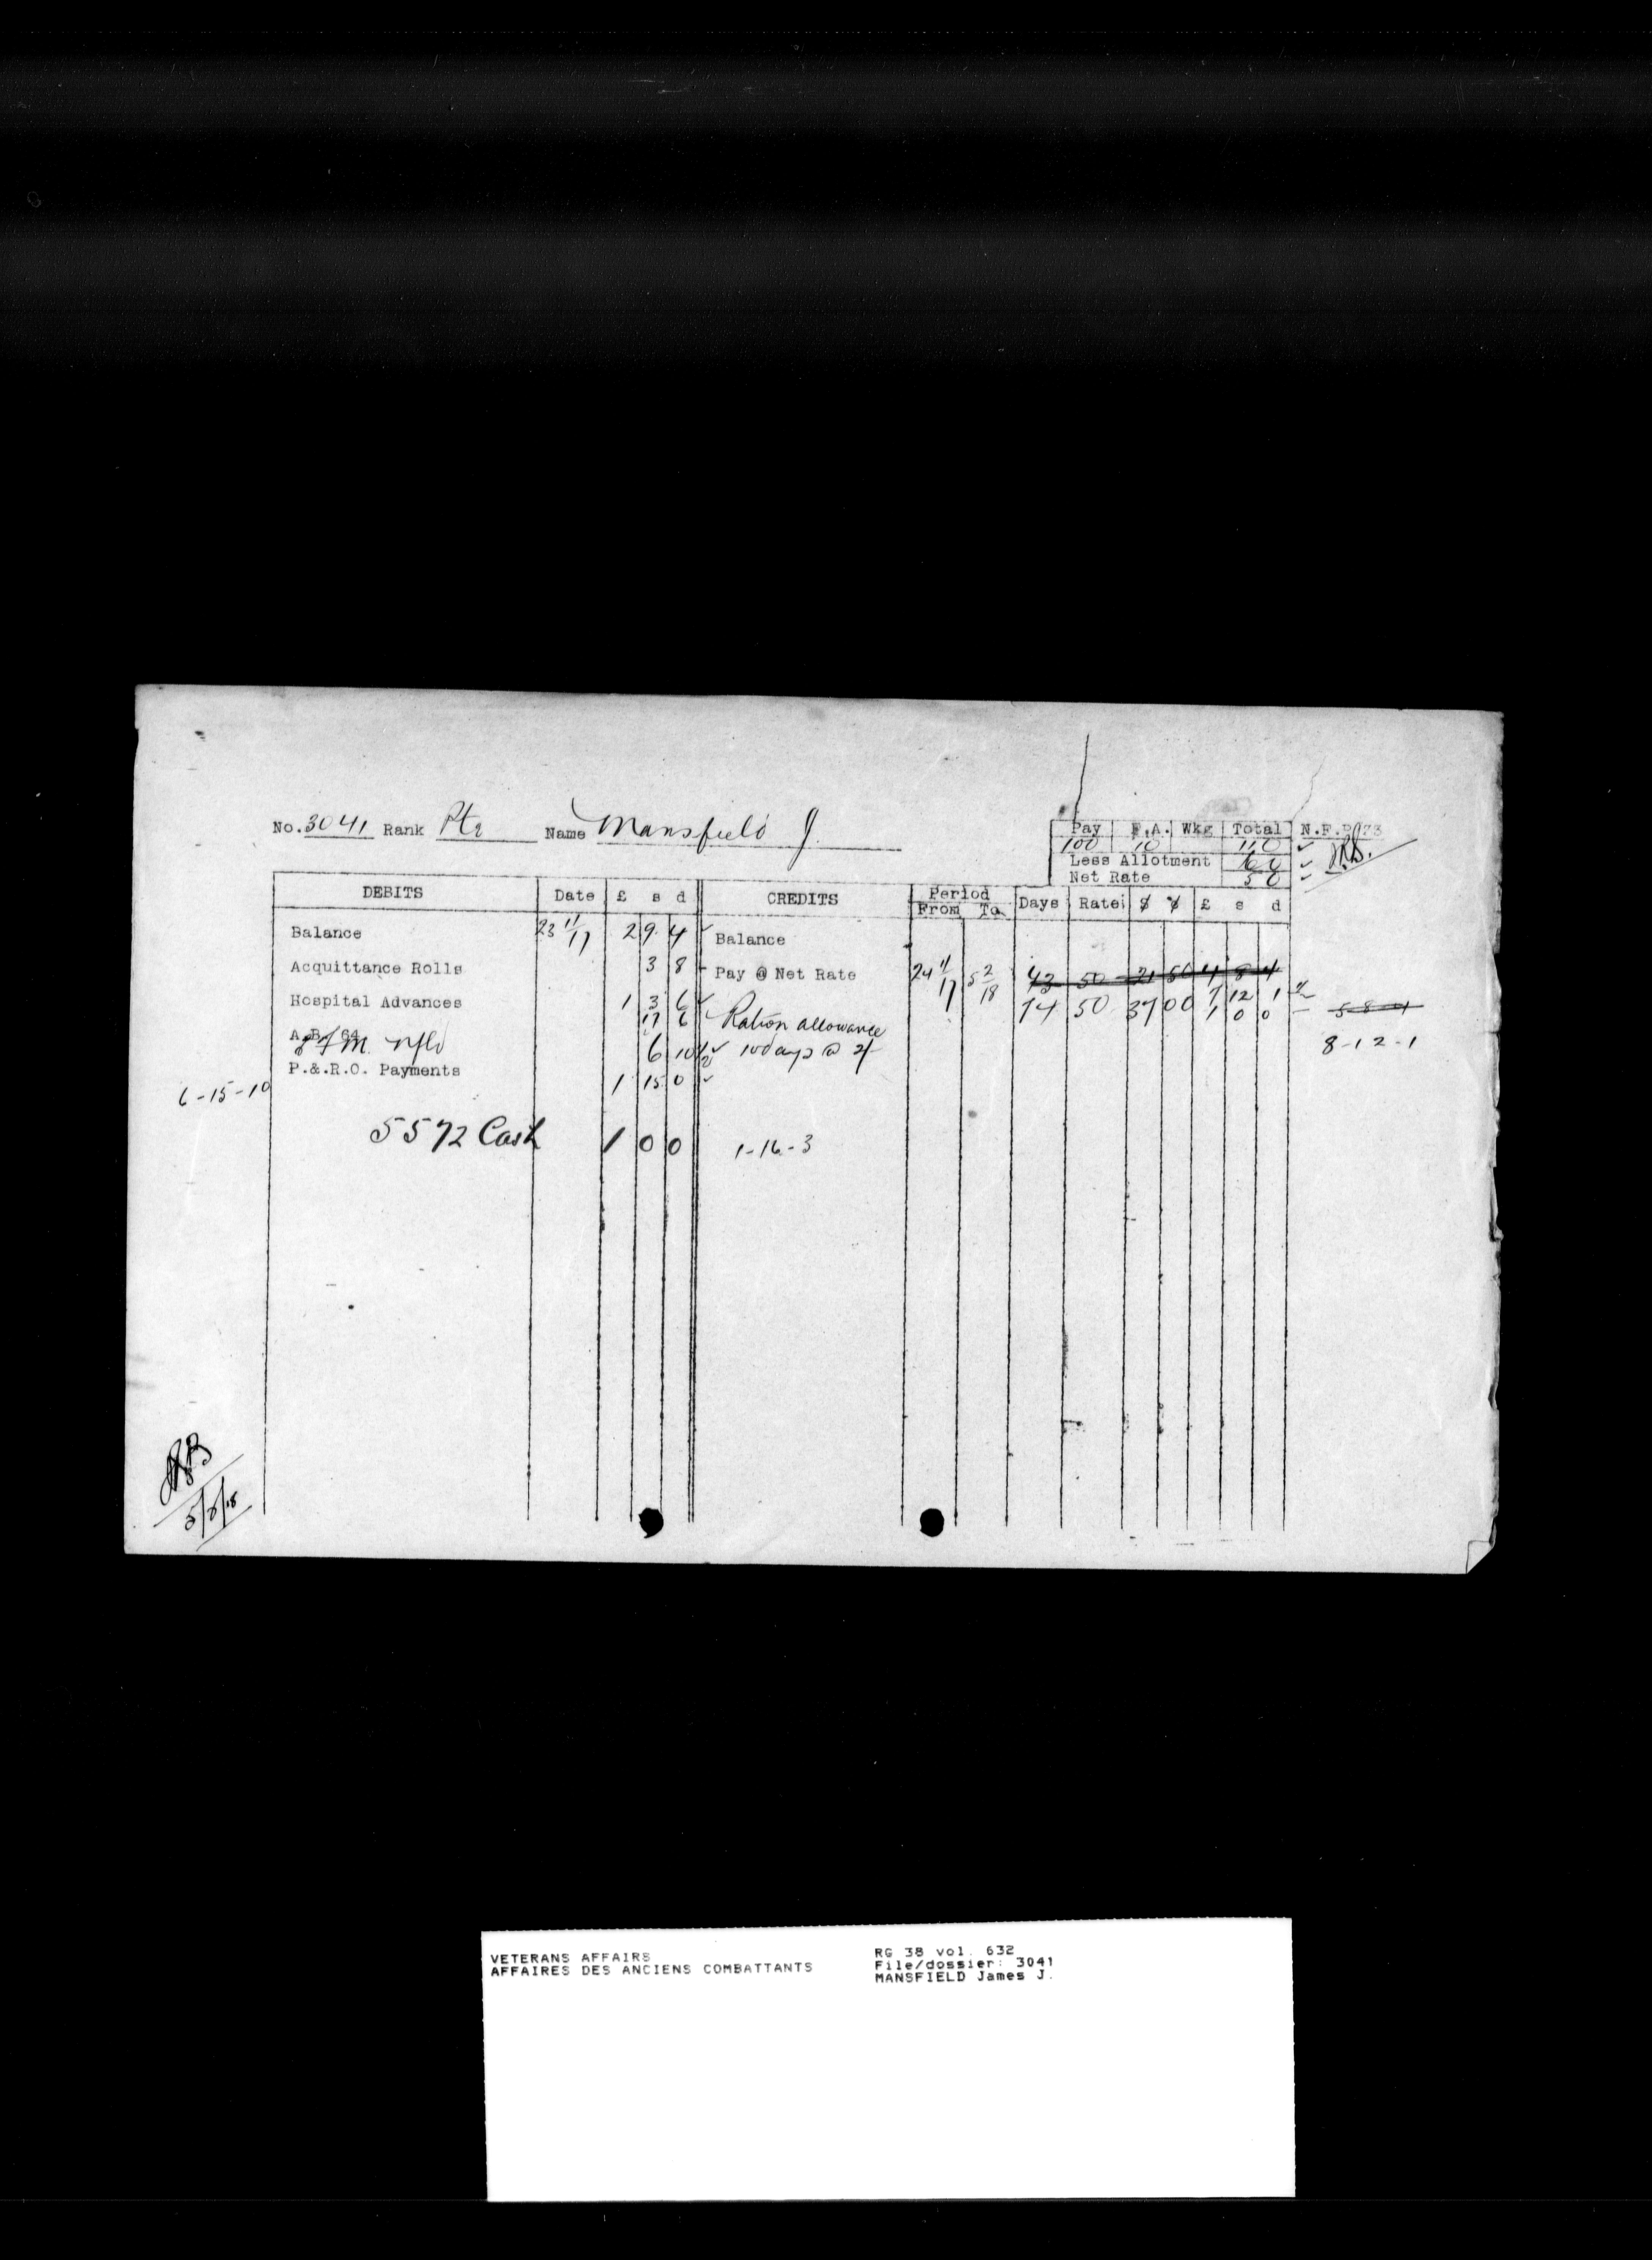 No. 3041 Rank Pte Name Mansfield J.
Pay F.A. Wkg Total N.F.P/73
100 10 110
Less Allotment 60
Net Rate 50
DEBITS Date £ s d CREDITS Period From To Days Rate $ ¢ £ s d
Balance 23 11/17 2 9 4 Balance
Acquittance Rolls 3 8 Pay @ Net Rate 24 11/17 5 2/18 43 50 21 50 4 8 4
Hospital Advances 1 3 6 74 50 37 00 7 12 1
17 6 Ration allowance 1 0 0 5 8 4
A.B. 64 Nfld 6 10 1/2 10 days @ 2/- 8-12-1
P.&.R.O. Payments 1 15 0
6-15-10
5572 Cash 1 0 0 1-16-3
VETERANS AFFAIRS
AFFAIRES DES ANCIENS COMBATTANTS
RG 38 vol. 632
File/dossier: 3041
MANSFIELD James J.